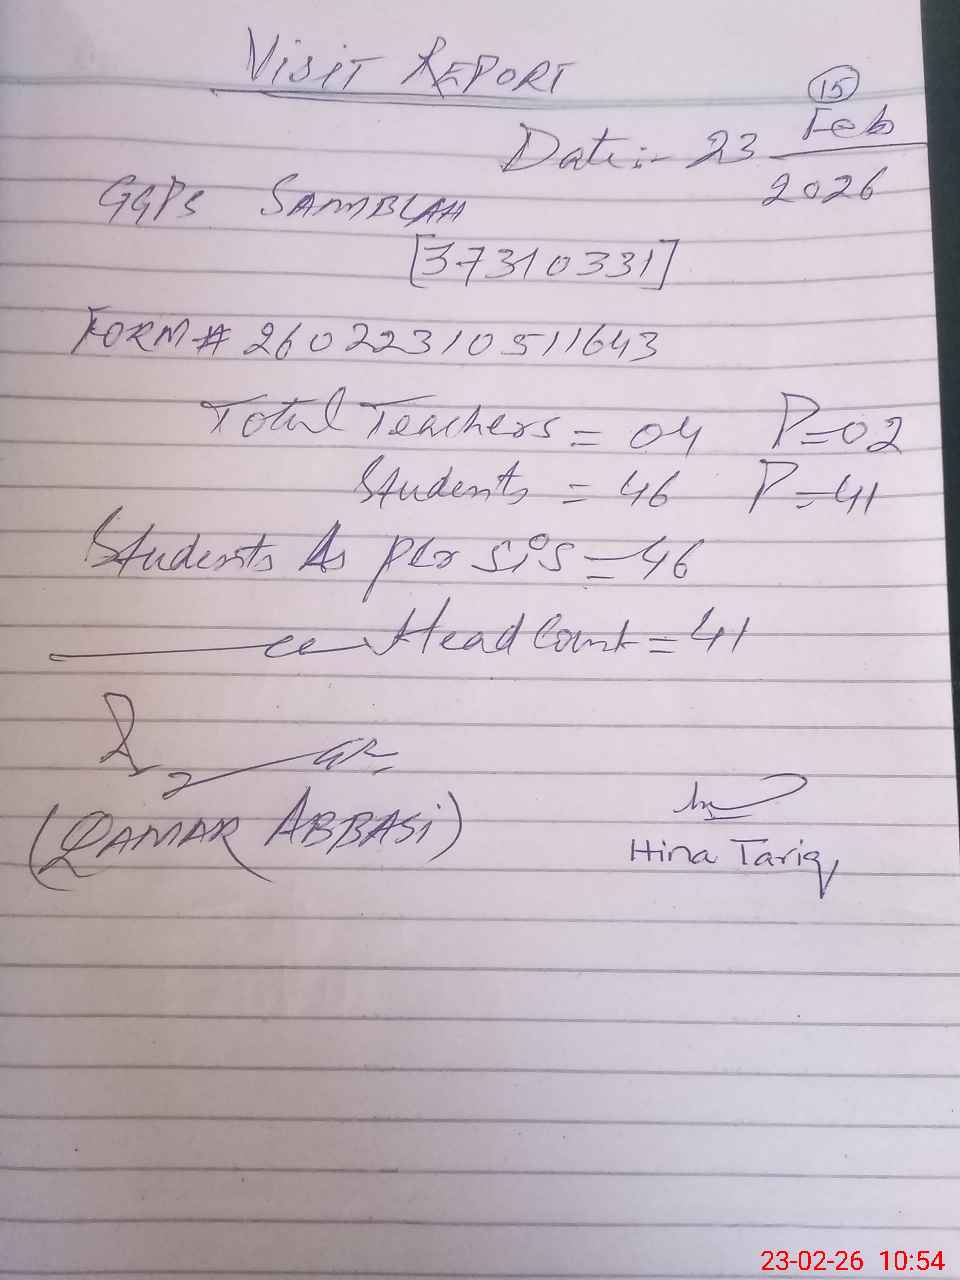 VISIT REPORT
15
Date:- 23 Feb
2026
GGPS SAMBLAH
[37310331]
FORM # 26022310511643
Total Teachers = 04 P=02
Students = 46 P=41
Students As per SiS = 46
Head Count = 41
(QAMAR ABBASi)
Hina Tariq
23-02-26 10:54